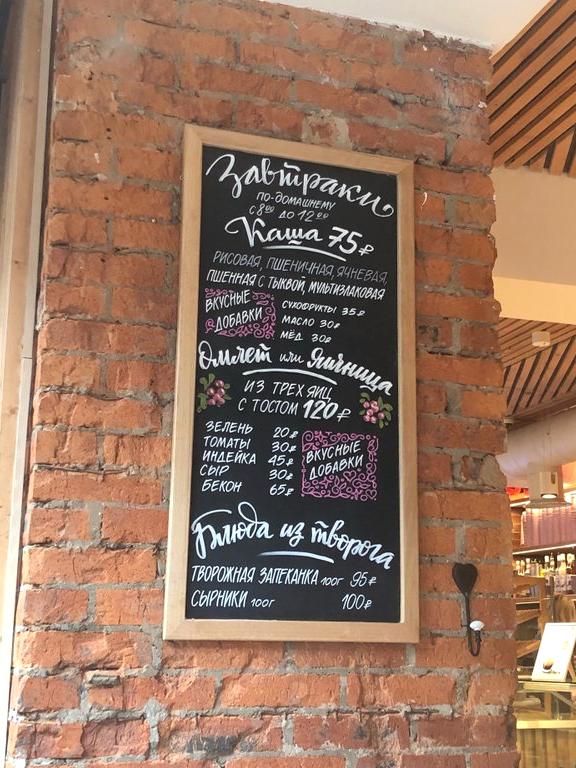 Завтраки
по-домашнему
с 8⁰⁰ до 12⁰⁰
Каша 75₽
рисовая, пшеничная, ячневая,
пшенная с тыквой, мультизлаковая
вкусные
добавки
сухофрукты 35₽
масло 30₽
мёд 30₽
Омлет или Яичница
из трех яиц
с тостом 120₽
зелень 20₽
томаты 30₽
индейка 45₽
сыр 30₽
бекон 65₽
вкусные
добавки
Блюда из творога
творожная запеканка 100г 95₽
сырники 100г 100₽